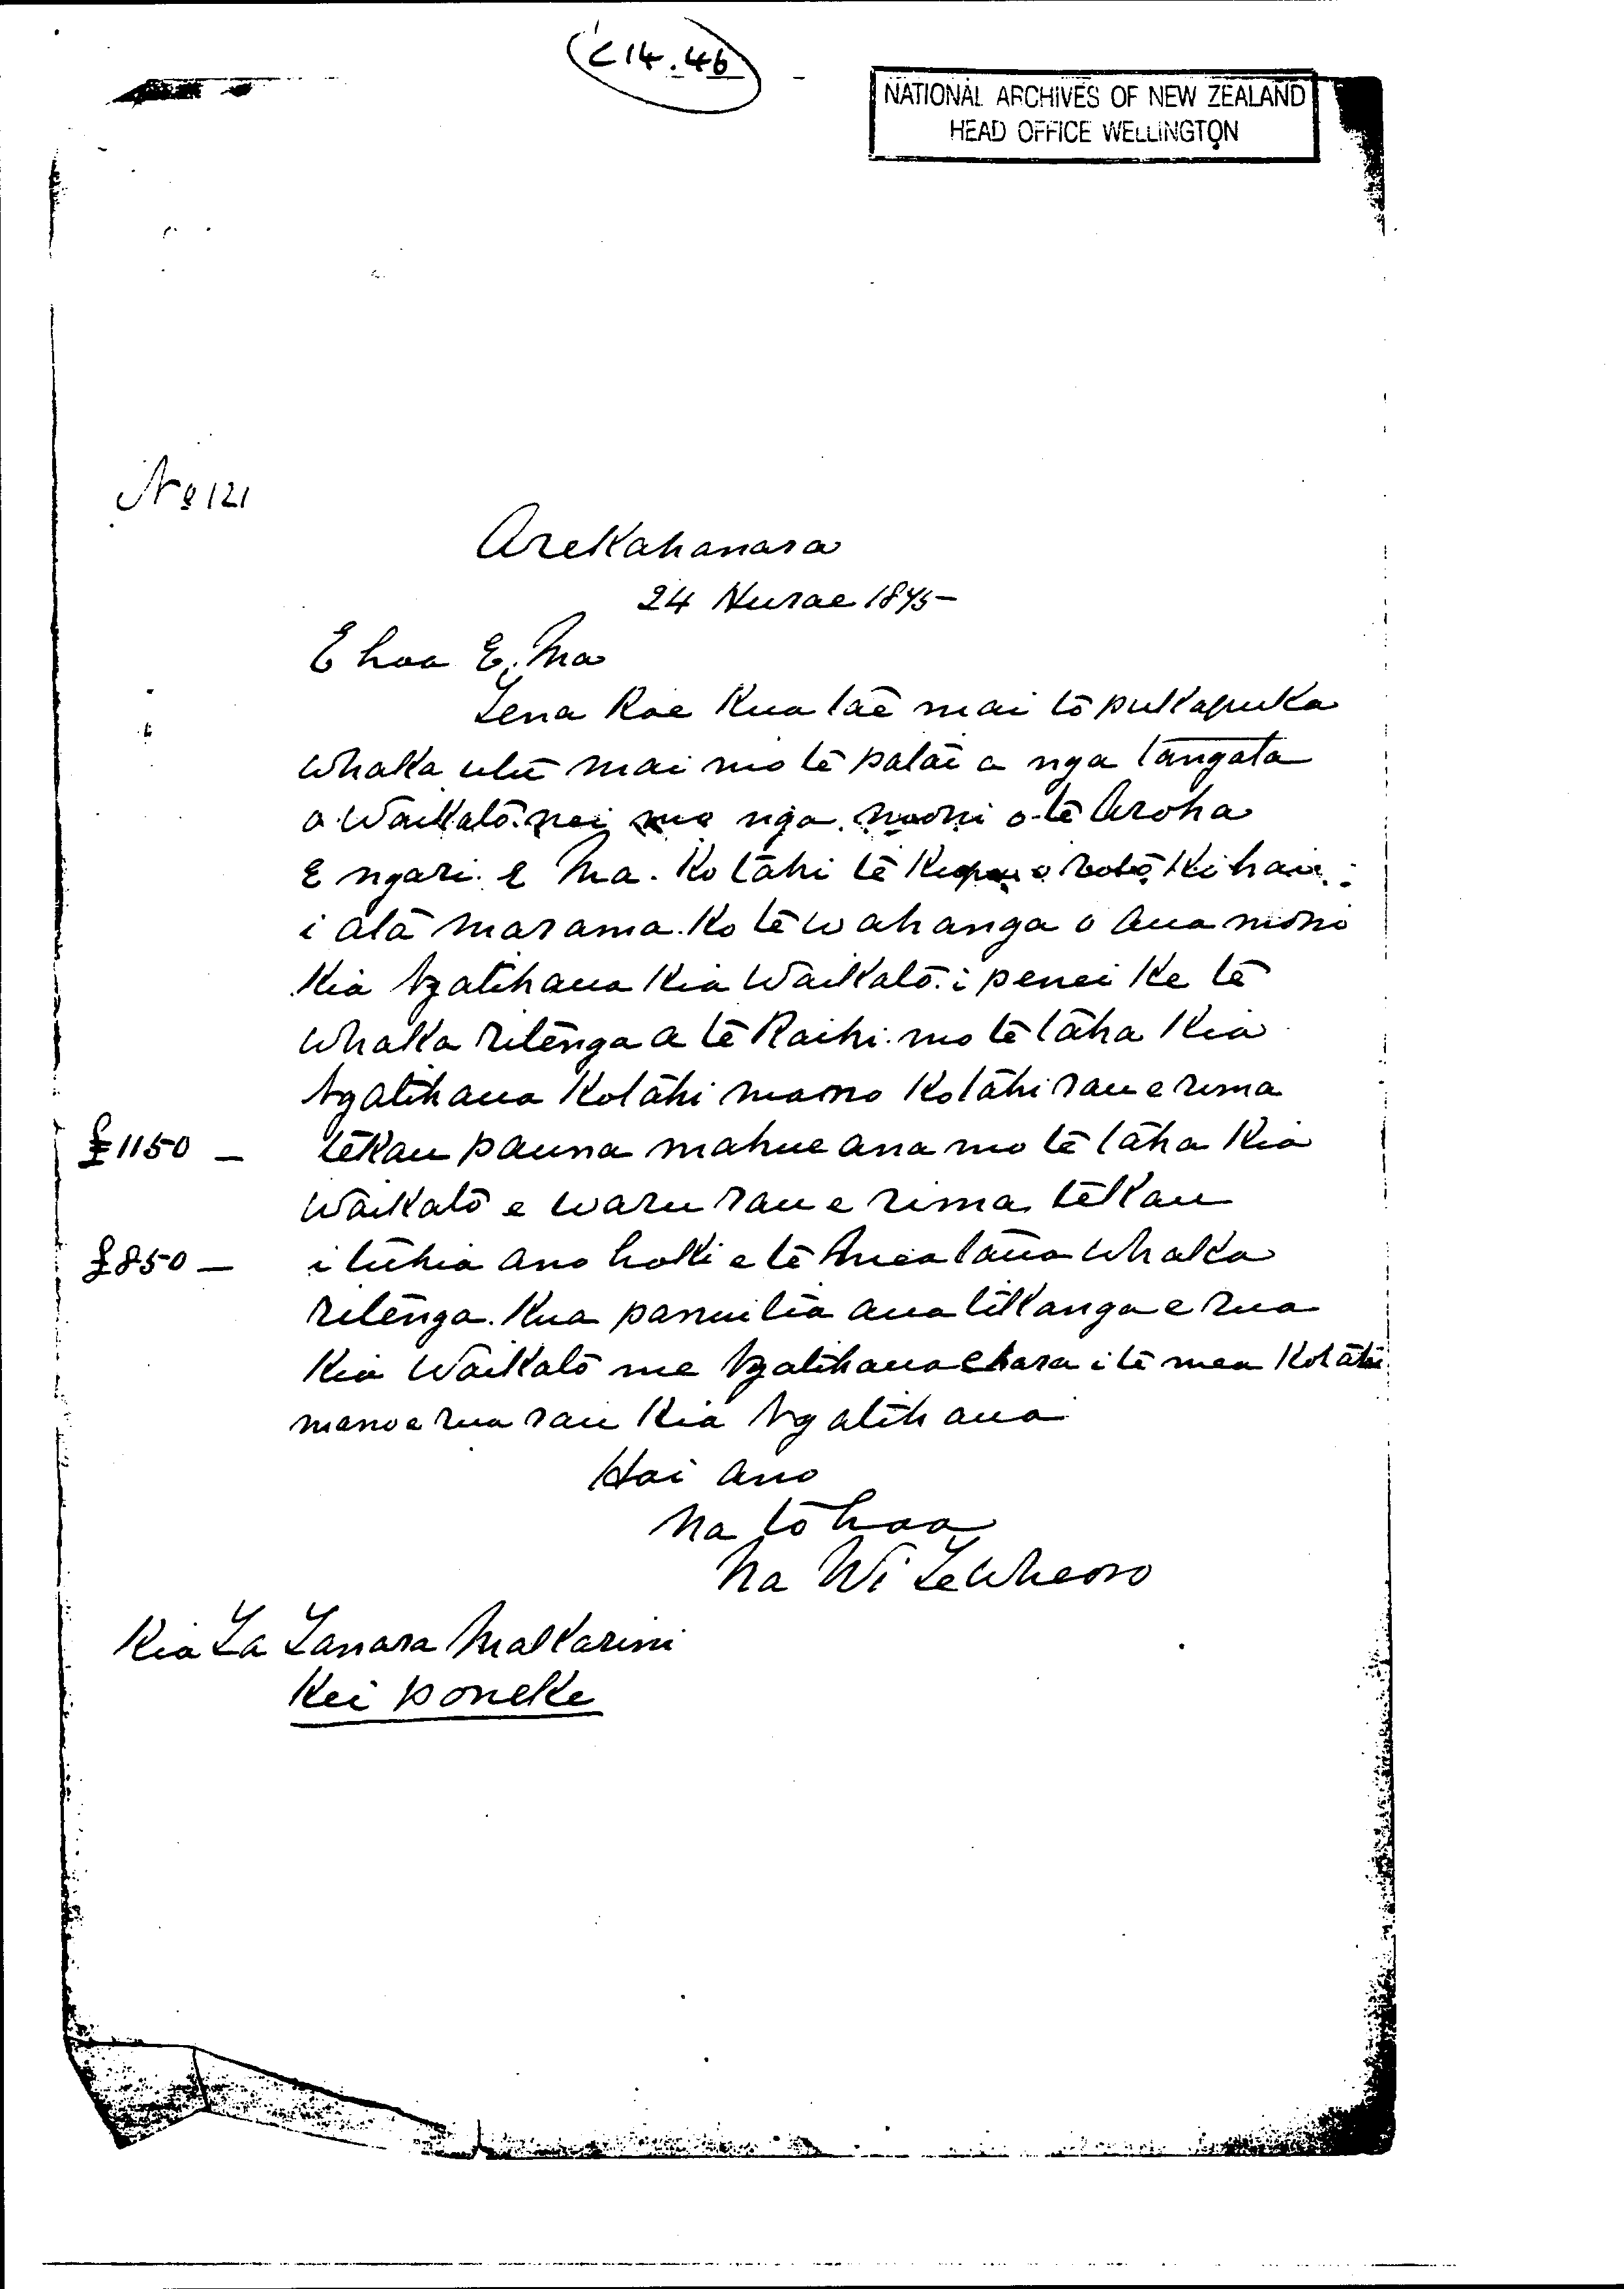 C14.46
NATIONAL ARCHIVES OF NEW ZEALAND
HEAD OFFICE WELLINGTON
No 121
Arekahanara
24 Hurae 1875-
E hoa E, Ma
Tena koe Kua tae mai to pukapuka
whaka utu mai mo te patai a nga tangata
o Waikato nei mo nga mooni o te Aroha
E ngari. E Ma. Kotahi te kupu o roto kihai
i ata marama. Ko te wahanga o aua moni
Kia Ngatihaua Kia Waikato. i penei ke te
whaka ritenga a te Raihi. mo te taha kia
Ngatihaua Kotahi mano Kotahi rau e rima
£1150 - tekau pauna mahue ana mo te taha Kia
Waikato e waru rau e rima tekau
£850 - i tuhia ano hoki e te Mea taua whaka
ritenga. Kua panuitia aua tikanga e rua
Kia Waikato me Ngatihaua ehara i te mea Kotahi
mano e rua rau Kia Ngatihaua
Hoi ano
Na to hoa
Na Wi Te Wheoro
Kia Ta Tanara Makarini
Kei poneke